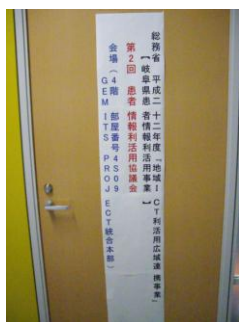 総務省 平成二十二年度「地域ICT利活用広域連携事業」
【岐阜県患者情報利活用事業】
第2回 患者情報利活用協議会
会場(4階 部屋番号4S09
GEMITS PROJECT統合本部)